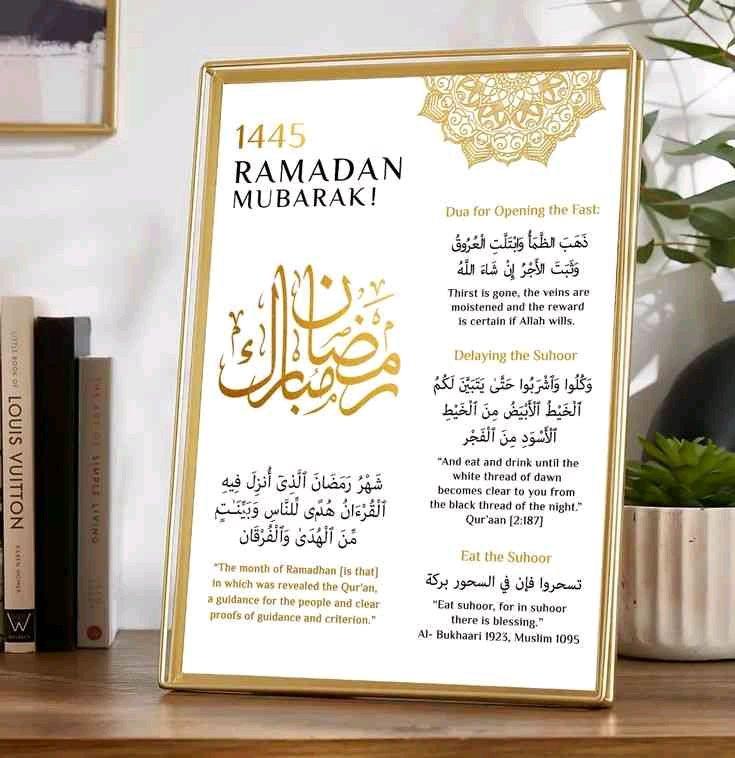 1445
RAMADAN
MUBARAK!
رمضان
مبارك
شَهْرُ رَمَضَانَ ٱلَّذِىٓ أُنزِلَ فِيهِ
ٱلْقُرْءَانُ هُدًى لِّلنَّاسِ وَبَيِّنَـٰتٍ
مِّنَ ٱلْهُدَىٰ وَٱلْفُرْقَان
"The month of Ramadhan [is that]
in which was revealed the Qur'an,
a guidance for the people and clear
proofs of guidance and criterion."
Dua for Opening the Fast:
ذَهَبَ الظَّمَأُ وَابْتَلَّتِ الْعُرُوقُ
وَثَبَتَ الأَجْرُ إِنْ شَاءَ اللَّهُ
Thirst is gone, the veins are
moistened and the reward
is certain if Allah wills.
Delaying the Suhoor
وَكُلُوا وَٱشْرَبُوا حَتَّىٰ يَتَبَيَّنَ لَكُمُ
ٱلْخَيْطُ ٱلْأَبْيَضُ مِنَ ٱلْخَيْطِ
ٱلْأَسْوَدِ مِنَ ٱلْفَجْرِ
"And eat and drink until the
white thread of dawn
becomes clear to you from
the black thread of the night."
Qur'aan [2:187]
Eat the Suhoor
تسحروا فإن في السحور بركة
"Eat suhoor, for in suhoor
there is blessing."
Al- Bukhaari 1923, Muslim 1095
LITTLE BOOK OF
LOUIS VUITTON
KAREN HOMER
W
THE ART OF SIMPLE LIVING